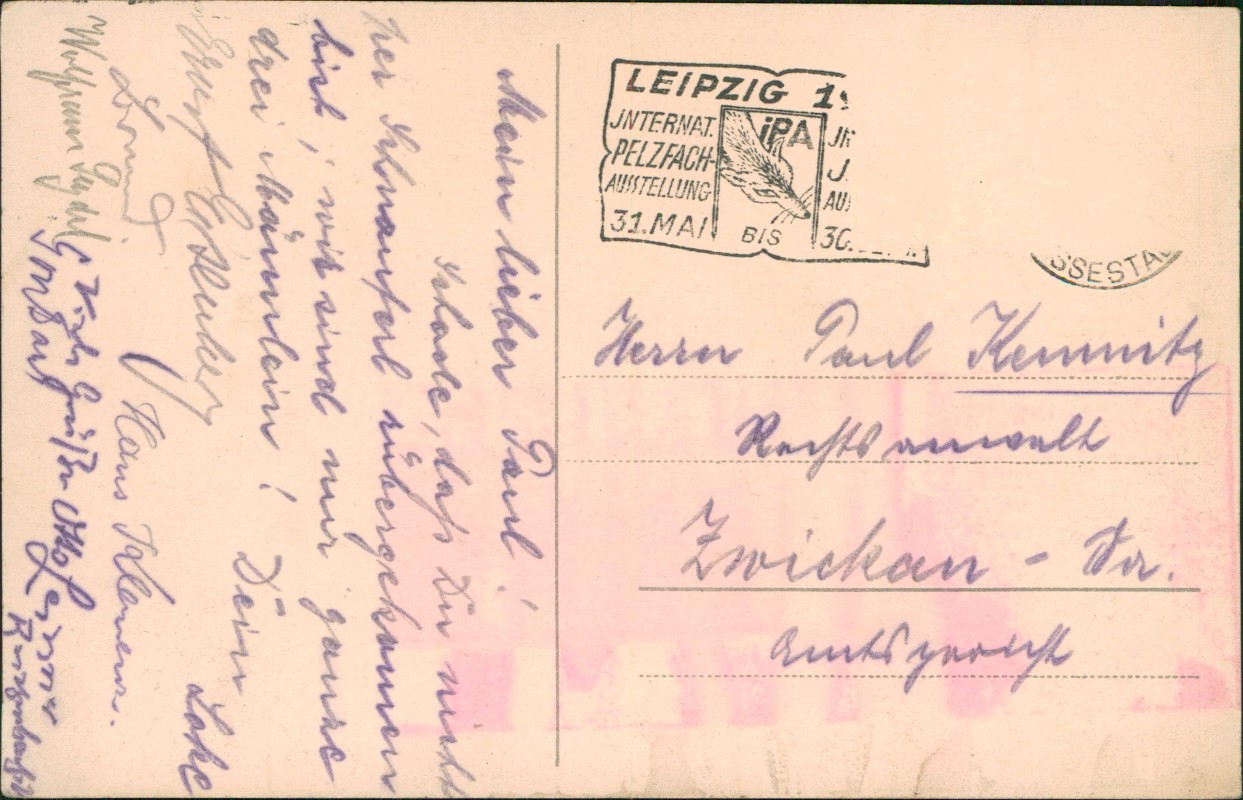 Mein lieber Paul!
Schade, daß Du nicht
her Schnauferl rübergekommen
bist, wir sind nur ganze
drei Männlein! Dein
Lohe
Hans Klemm.
Wolfram Seydel
Viele Grüße Otto
LEIPZIG 1
JNTERNAT.
PELZFACH-
AUSSTELLUNG
31. MAI
iPA
BIS
30.
SSESTA
Herrn Paul Kemnitz
Rechtsanwalt
Zwickau - Sa.
Amtsgericht